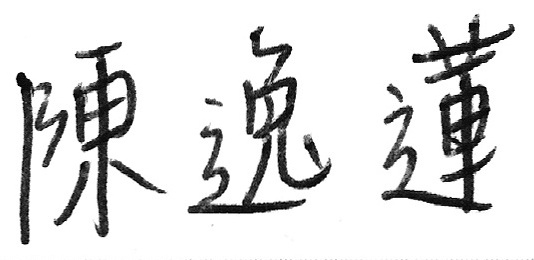 陳逸蓮